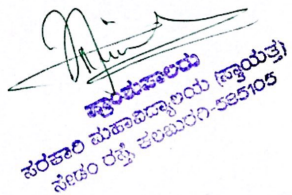 ಪ್ರಾಂಶುಪಾಲರು
ಸರಕಾರಿ ಮಹಾವಿದ್ಯಾಲಯ (ಸ್ವಾಯತ್ತ)
ಸೇಡಂ ರಸ್ತೆ ಕಲಬುರಗಿ-585105